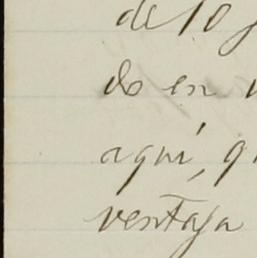 de lo
do en
aquí, q
ventaja